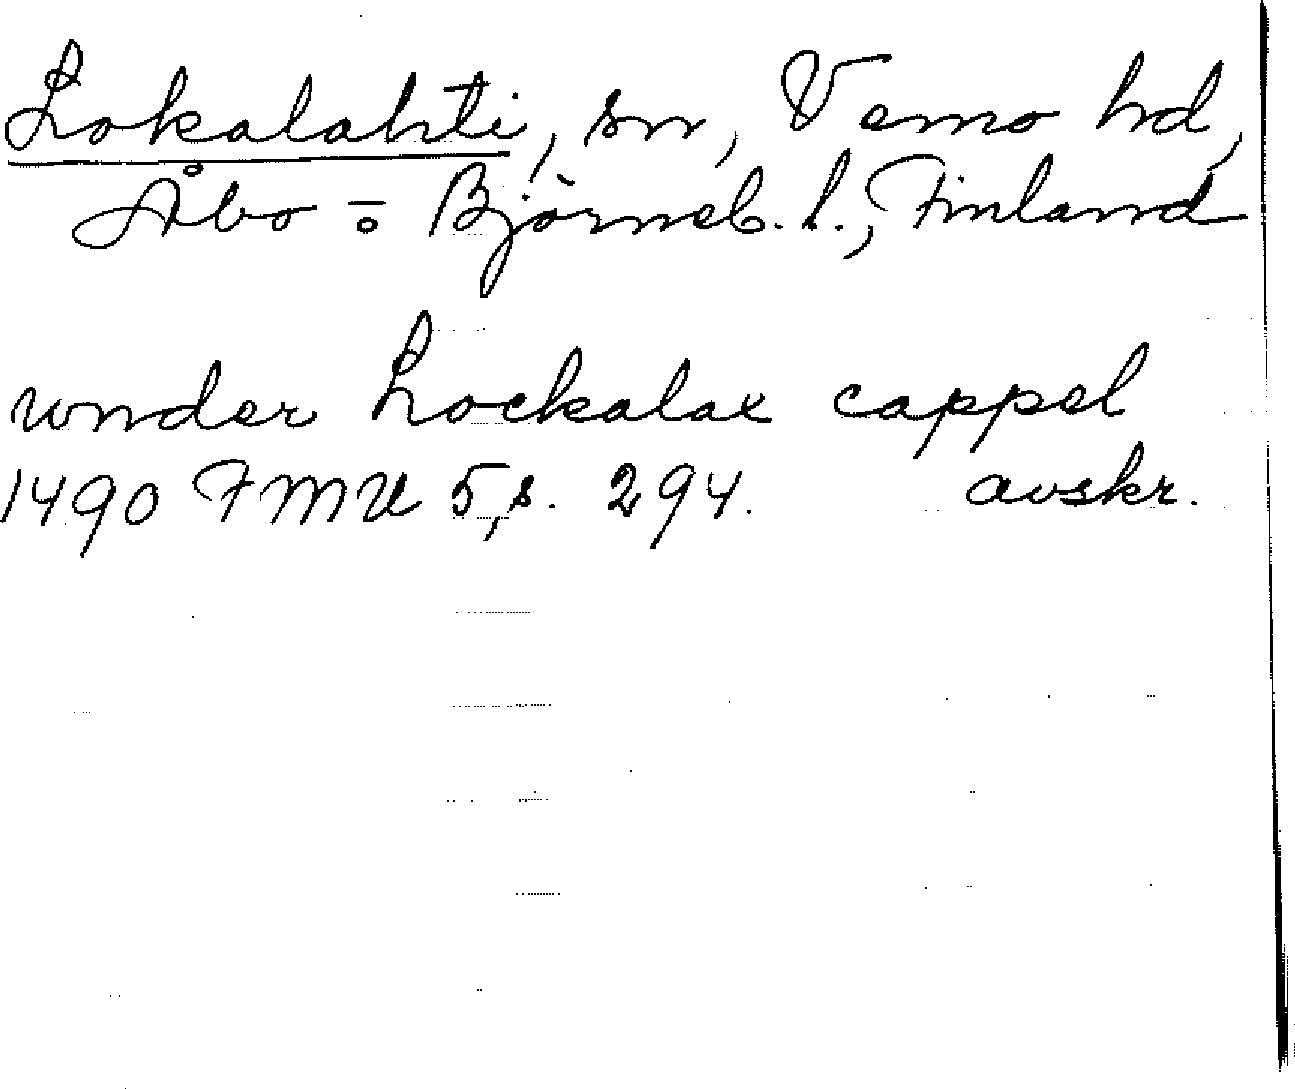 Lokalahti, sn, Vemo hd,
Åbo- o Björneb. l., Finland
wnder Lockalax cappel
1490 FMU 5, s. 294. avskr.